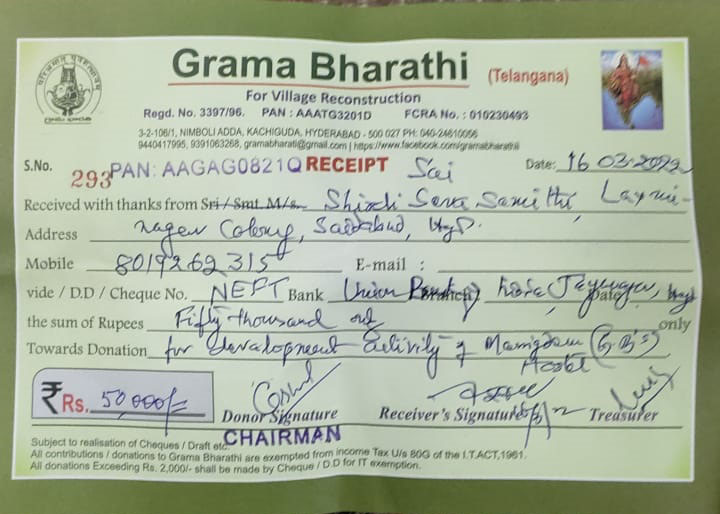 Grama Bharathi (Telangana)
For Village Reconstruction
Regd. No. 3397/96. PAN : AAATG3201D FCRA No. : 010230493
3-2-106/1, NIMBOLI ADDA, KACHIGUDA, HYDERABAD - 500 027 PH: 040-24610056
9440417995, 9391063268, gramabharati@gmail.com | https://www.facebook.com/gramabharathi
S.No. 293 PAN: AAGAG0821Q RECEIPT Date: 16 03 2022
Sai
Received with thanks from Sri / Smt. M/s. Shirdi Seva Samithi, Laxmi-
Address nagar Colony, Saidabad, Hyd.
Mobile 8019262315 E-mail :
vide / D.D / Cheque No. NEFT Bank Union Bank of Branch Date
the sum of Rupees Fifty thousand only
Towards Donation for development activity of Hostel
₹ Rs. 50,000/=
Donor Signature Receiver's Signature Treasurer
CHAIRMAN
Subject to realisation of Cheques / Draft etc.
All contributions / donations to Grama Bharathi are exempted from income Tax U/s 80G of the I.T.ACT,1961.
All donations Exceeding Rs. 2,000/- shall be made by Cheque / D.D for IT exemption.